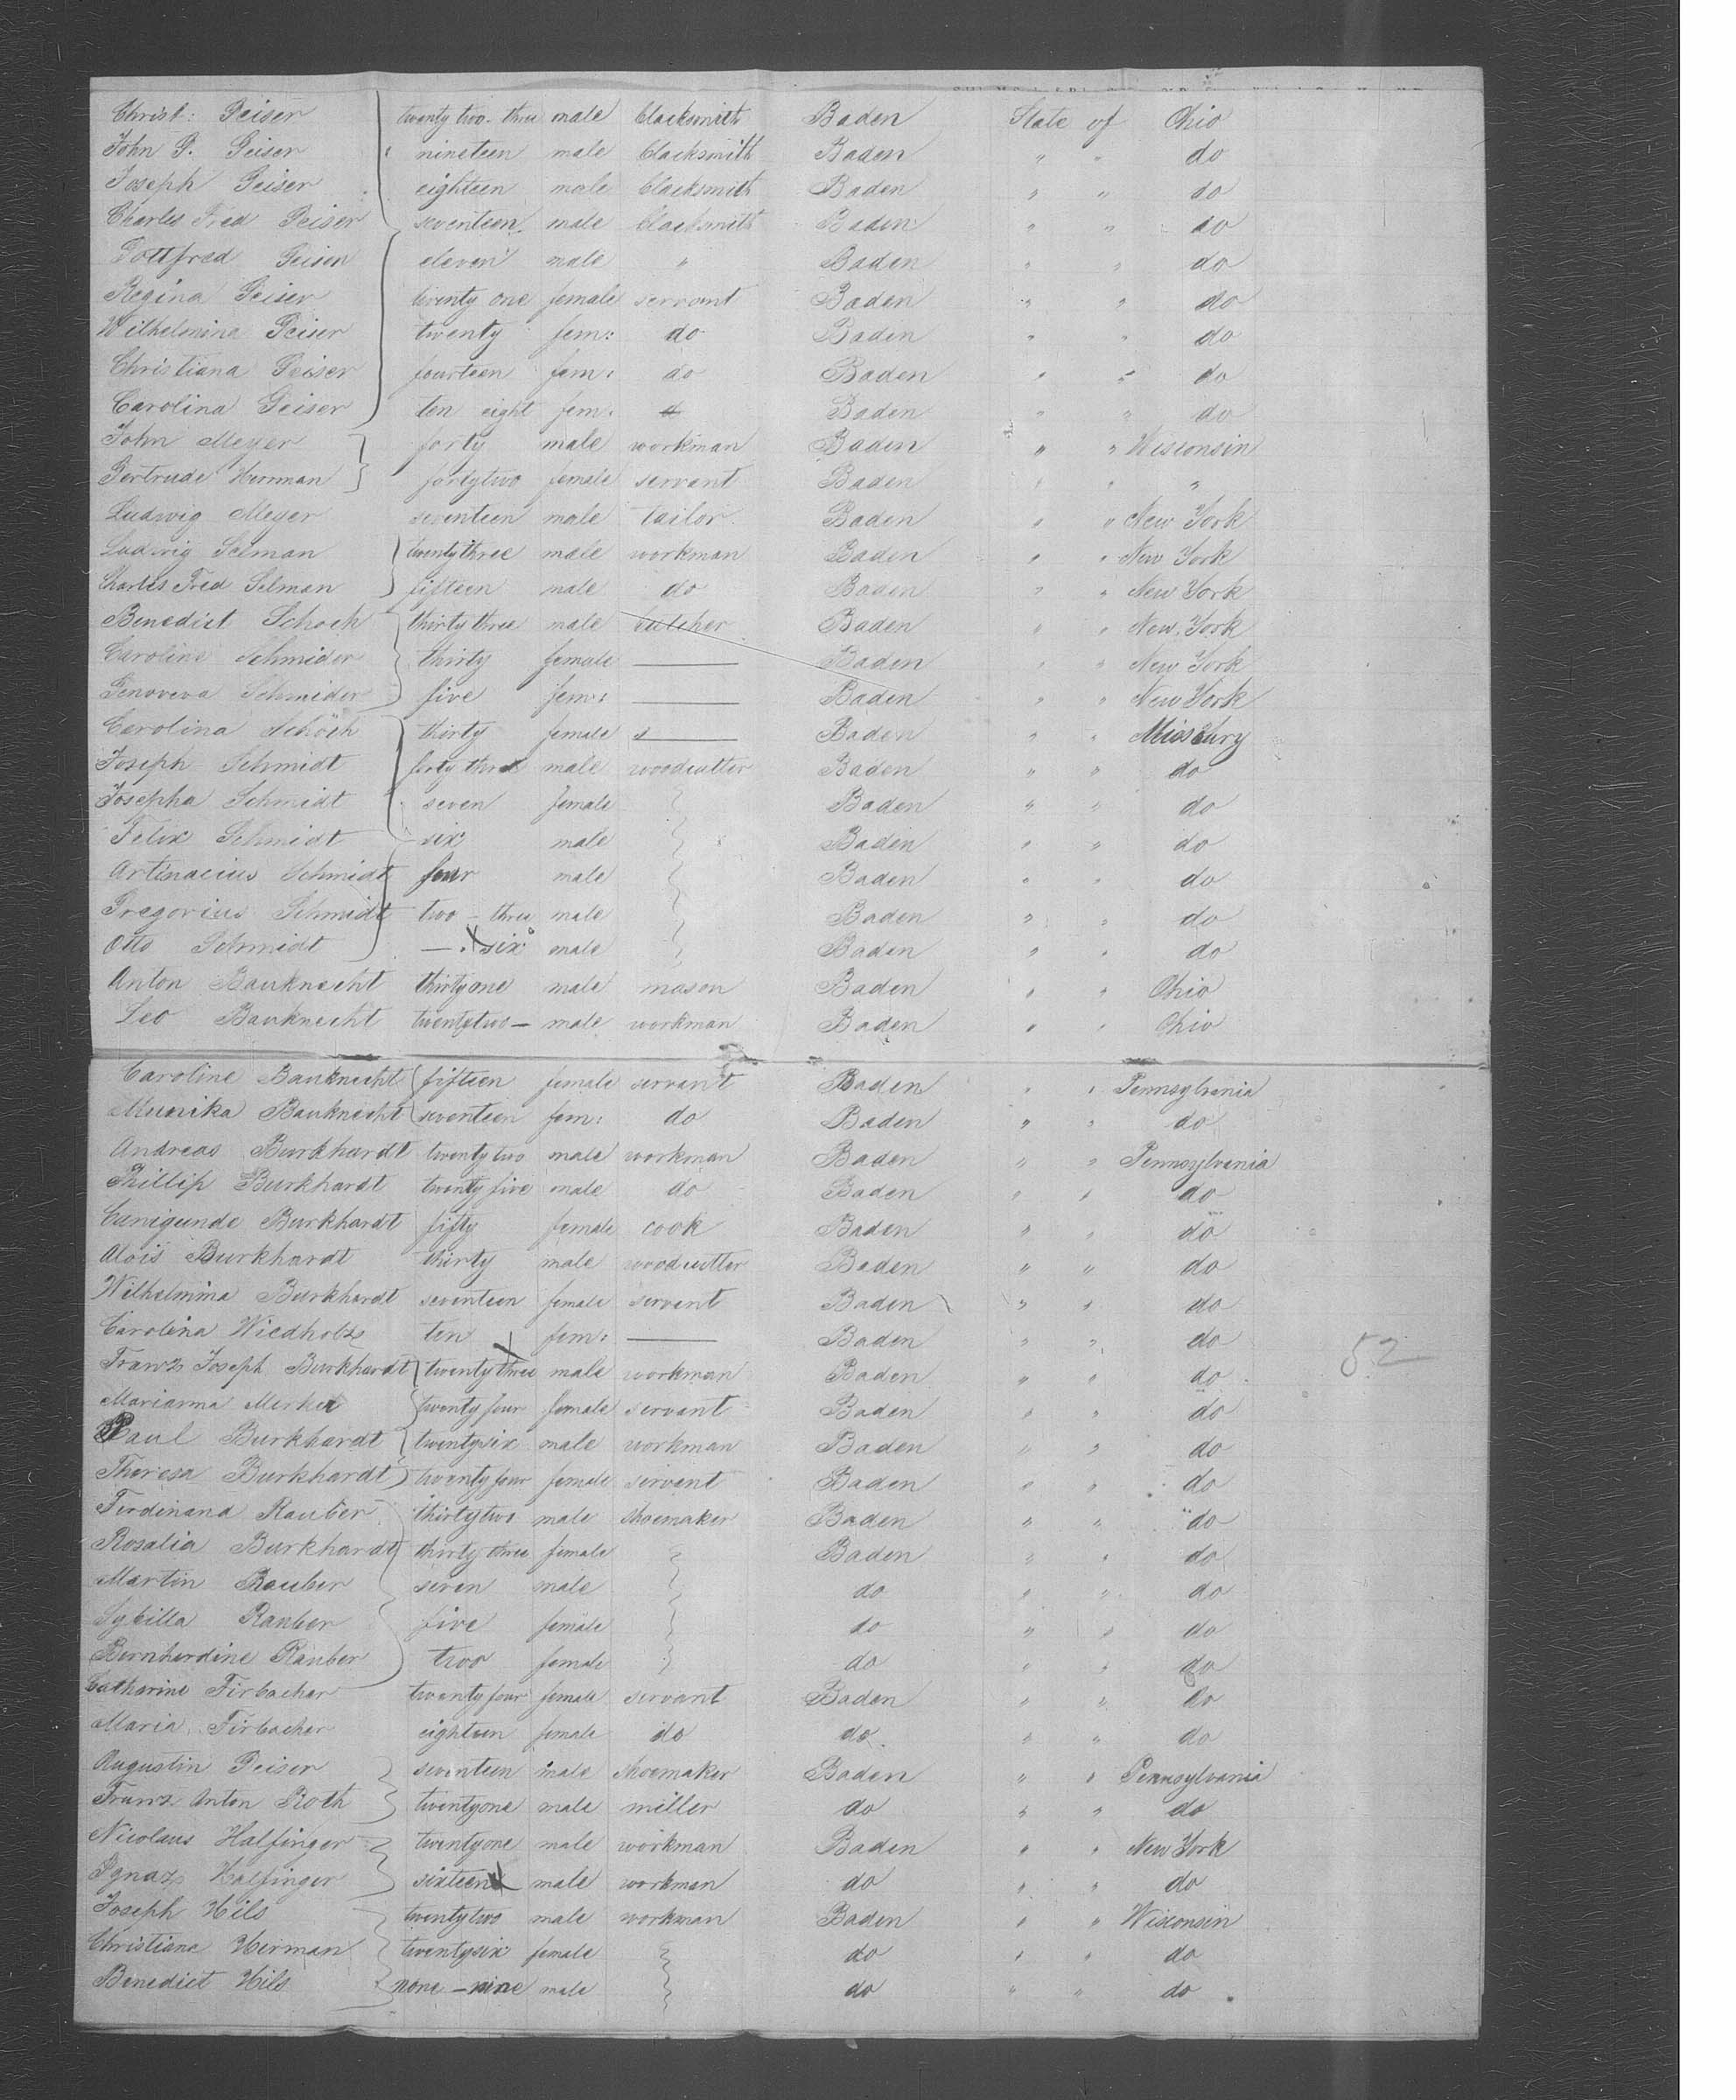 Christ: Geiser twenty two - three male blacksmith Baden State of Ohio
John G. Geiser nineteen male blacksmith Baden " " do
Joseph Geiser eighteen male blacksmith Baden " " do
Charles Fred Geiser seventeen male blacksmith Baden " " do
Gottfred Geiser eleven male " Baden " " do
Regina Geiser twenty one female servant Baden " " do
Wilhelmina Geiser twenty fem: do Baden " " do
Christiana Geiser fourteen fem: do Baden " " do
Carolina Geiser ten eight fem: Baden " " do
John Meyer forty male workman Baden " " Wisconsin
Gertrude Herrman forty two female servant Baden " " "
Ludwig Meyer seventeen male tailor Baden " " New York
Ludwig Selman twenty three male workman Baden " " New York
Charles Fred Selman fifteen male do Baden " " New York
Benedict Schoch thirty three male butcher Baden " " New York
Caroline Schmider thirty female — Baden " " New York
Genoveva Schmider five fem: — Baden " " New York
Carolina Schöch thirty female — Baden " " Missoury
Joseph Schmidt forty three male woodcutter Baden " " do
Josepha Schmidt seven female Baden " " do
Felix Schmidt six male Baden " " do
Schmidt four male Baden " " do
Gregorius Schmidt two - three male Baden " " do
Otto Schmidt — six male Baden " " do
Anton Bauknecht thirty one male mason Baden " " Ohio
Leo Bauknecht twenty two — male workman Baden " " Ohio
Caroline Bauknecht fifteen female servant Baden " " Pennsylvania
Bauknecht seventeen fem: do Baden " " do
Andreas Burkhardt twenty two male workman Baden " " Pennsylvania
Phillip Burkhardt twenty five male do Baden " " do
Cunigunde Burkhardt fifty female cook Baden " " do
Alois Burkhardt thirty male woodcutter Baden " " do
Wilhelmina Burkhardt seventeen female servant Baden " " do
Carolina Wiedholz ten fem: — Baden " " do
52
Franz Joseph Burkhardt twenty three male workman Baden " " do
Marianna Merker twenty four female servant Baden " " do
Paul Burkhardt twenty six male workman Baden " " do
Theresa Burkhardt twenty four female servant Baden " " do
Ferdinand Rauber thirty two male shoemaker Baden " " do
Rosalia Burkhardt thirty three female Baden " " do
Martin Rauber seven male do " " do
Sybilla Rauber five female do " " do
Bernherdine Rauber two female do " " do
Catharine Firbacher twenty four female servant Baden " " do
Maria Firbacher eighteen female do do " " do
Augustin Geiser seventeen male shoemaker Baden " " Pennsylvania
Franz Anton Roth twenty one male miller do " " do
Nicolaus Halfinger twenty one male workman Baden " " New York
Ignaz Halfinger sixteen male workman do " " do
Joseph Hils twenty two male workman Baden " " Wisconsin
Christiana Herman twenty six female do " " do
Benedict Hils none — nine male do " " do